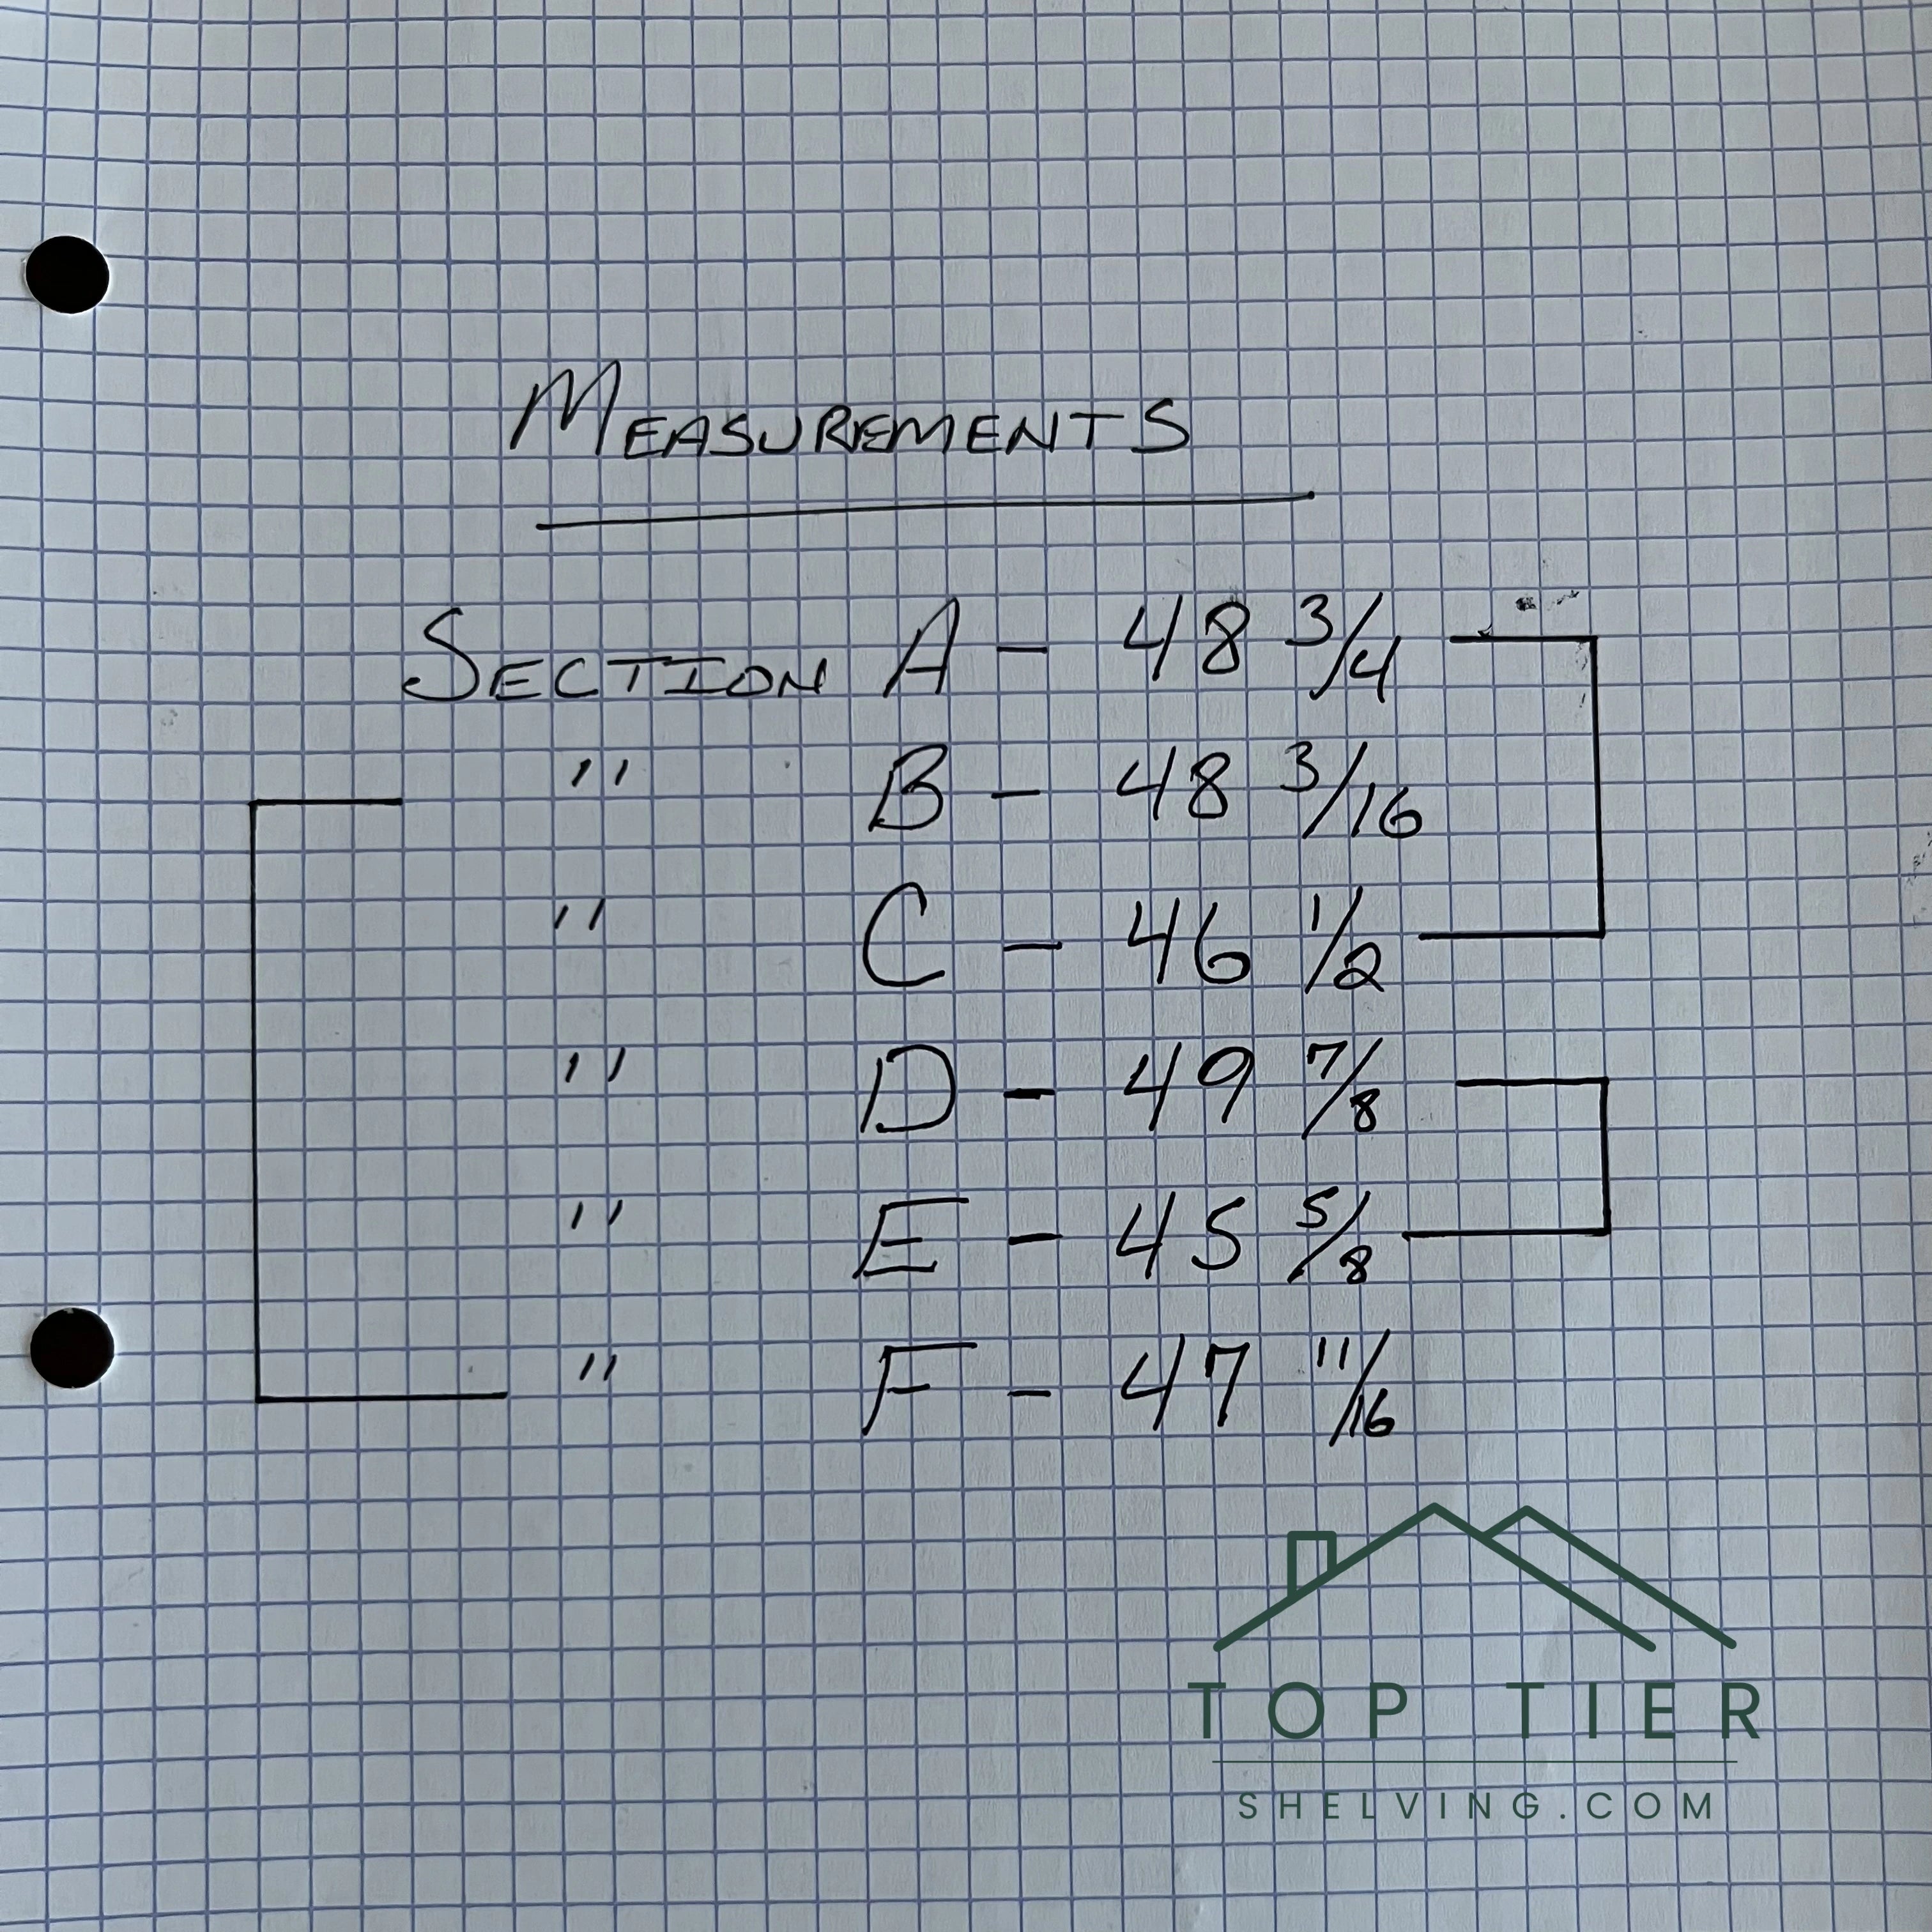 MEASUREMENTS
SECTION A - 48 3/4
" B - 48 3/16
" C - 46 1/2
" D - 49 7/8
" E - 45 5/8
" F - 47 11/16
TOP TIER
SHELVING.COM